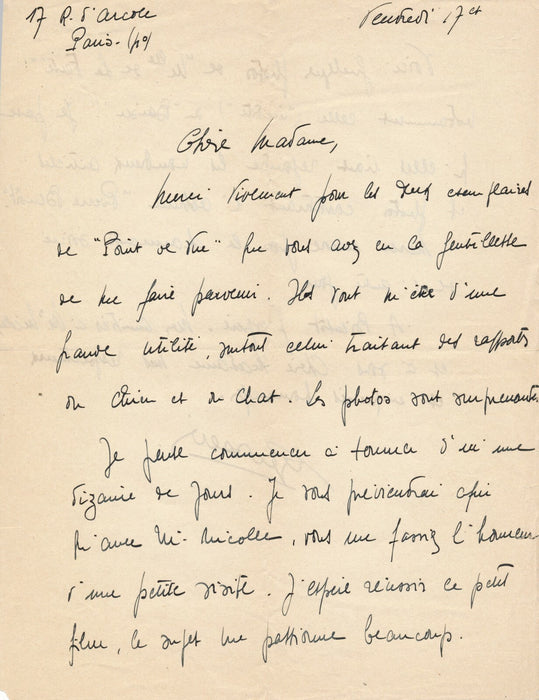 17 R. d'Arcole
Vendredi 17 ct
Paris. (IV°)
Chère Madame,
Merci vivement pour les deux exemplaires
de "Point de Vue" que vous avez eu la gentillesse
de me faire parvenir. Ils vont m'être d'une
grande utilité, surtout celui traitant des rapports
du chien et du chat. Les photos sont surprenantes.
Je pense commencer à tourner d'ici une
dizaine de jours. Je vous préviendrai afin
qu'avec M. Nicolle, vous me fassiez l'honneur
d'une petite visite. J'espère réussir ce petit
film, le sujet me passionne beaucoup.